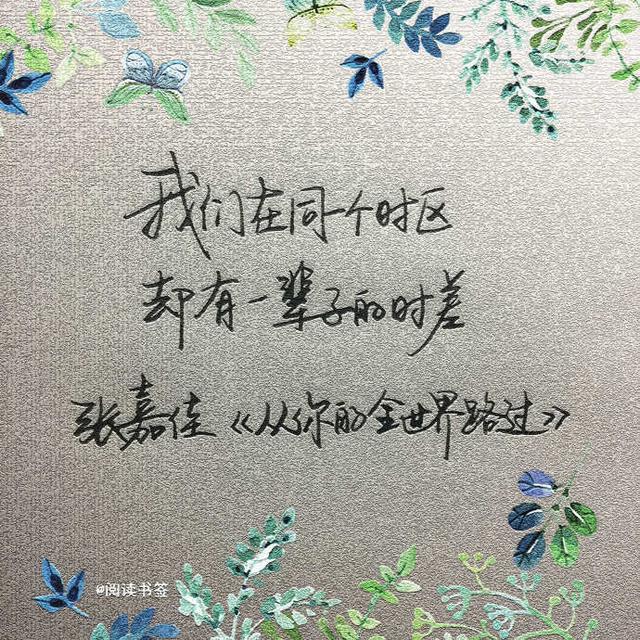 我们在同一个时区
却有一辈子的时差
张嘉佳《从你的全世界路过》
@阅读书签